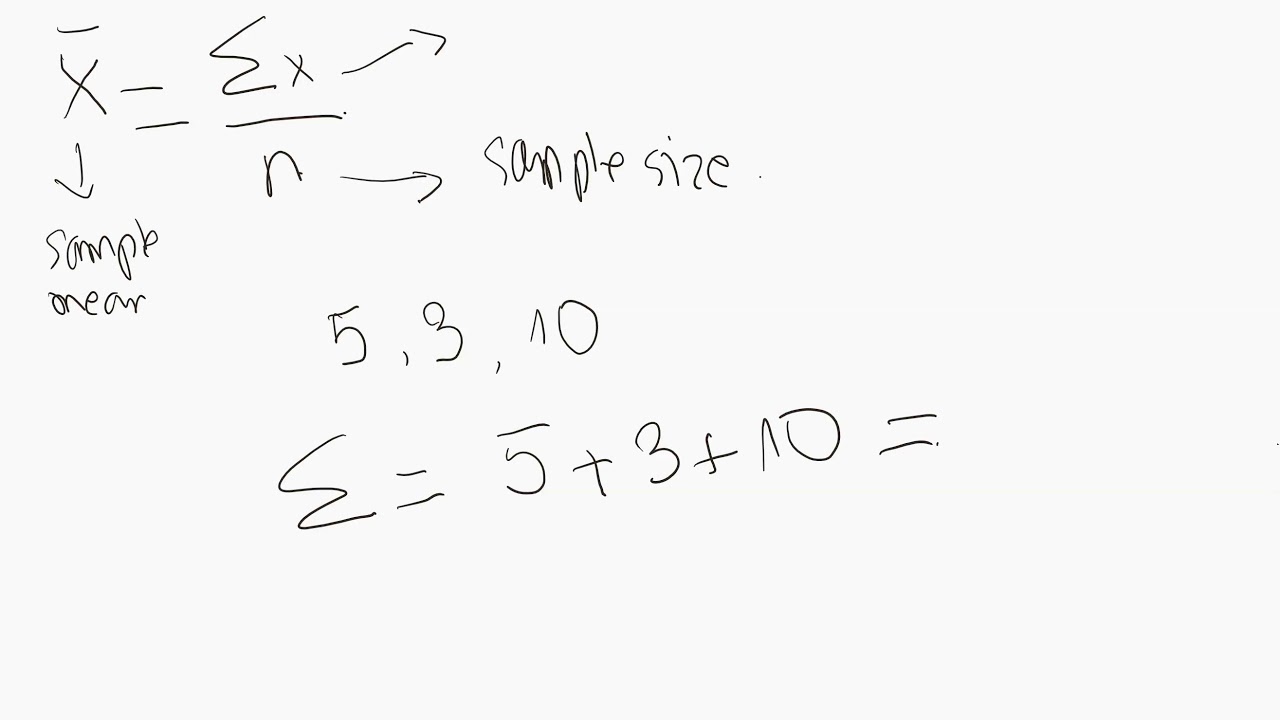 x̄ = Σx
n → sample size
sample
mean
5, 3, 10
Σ = 5 + 3 + 10 =